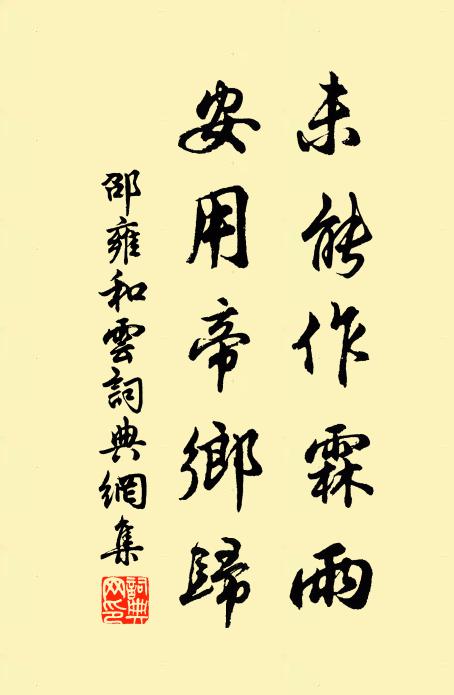 未能作霖雨
安用帝鄉歸
邵雍和雲詞典網集
詞典网印